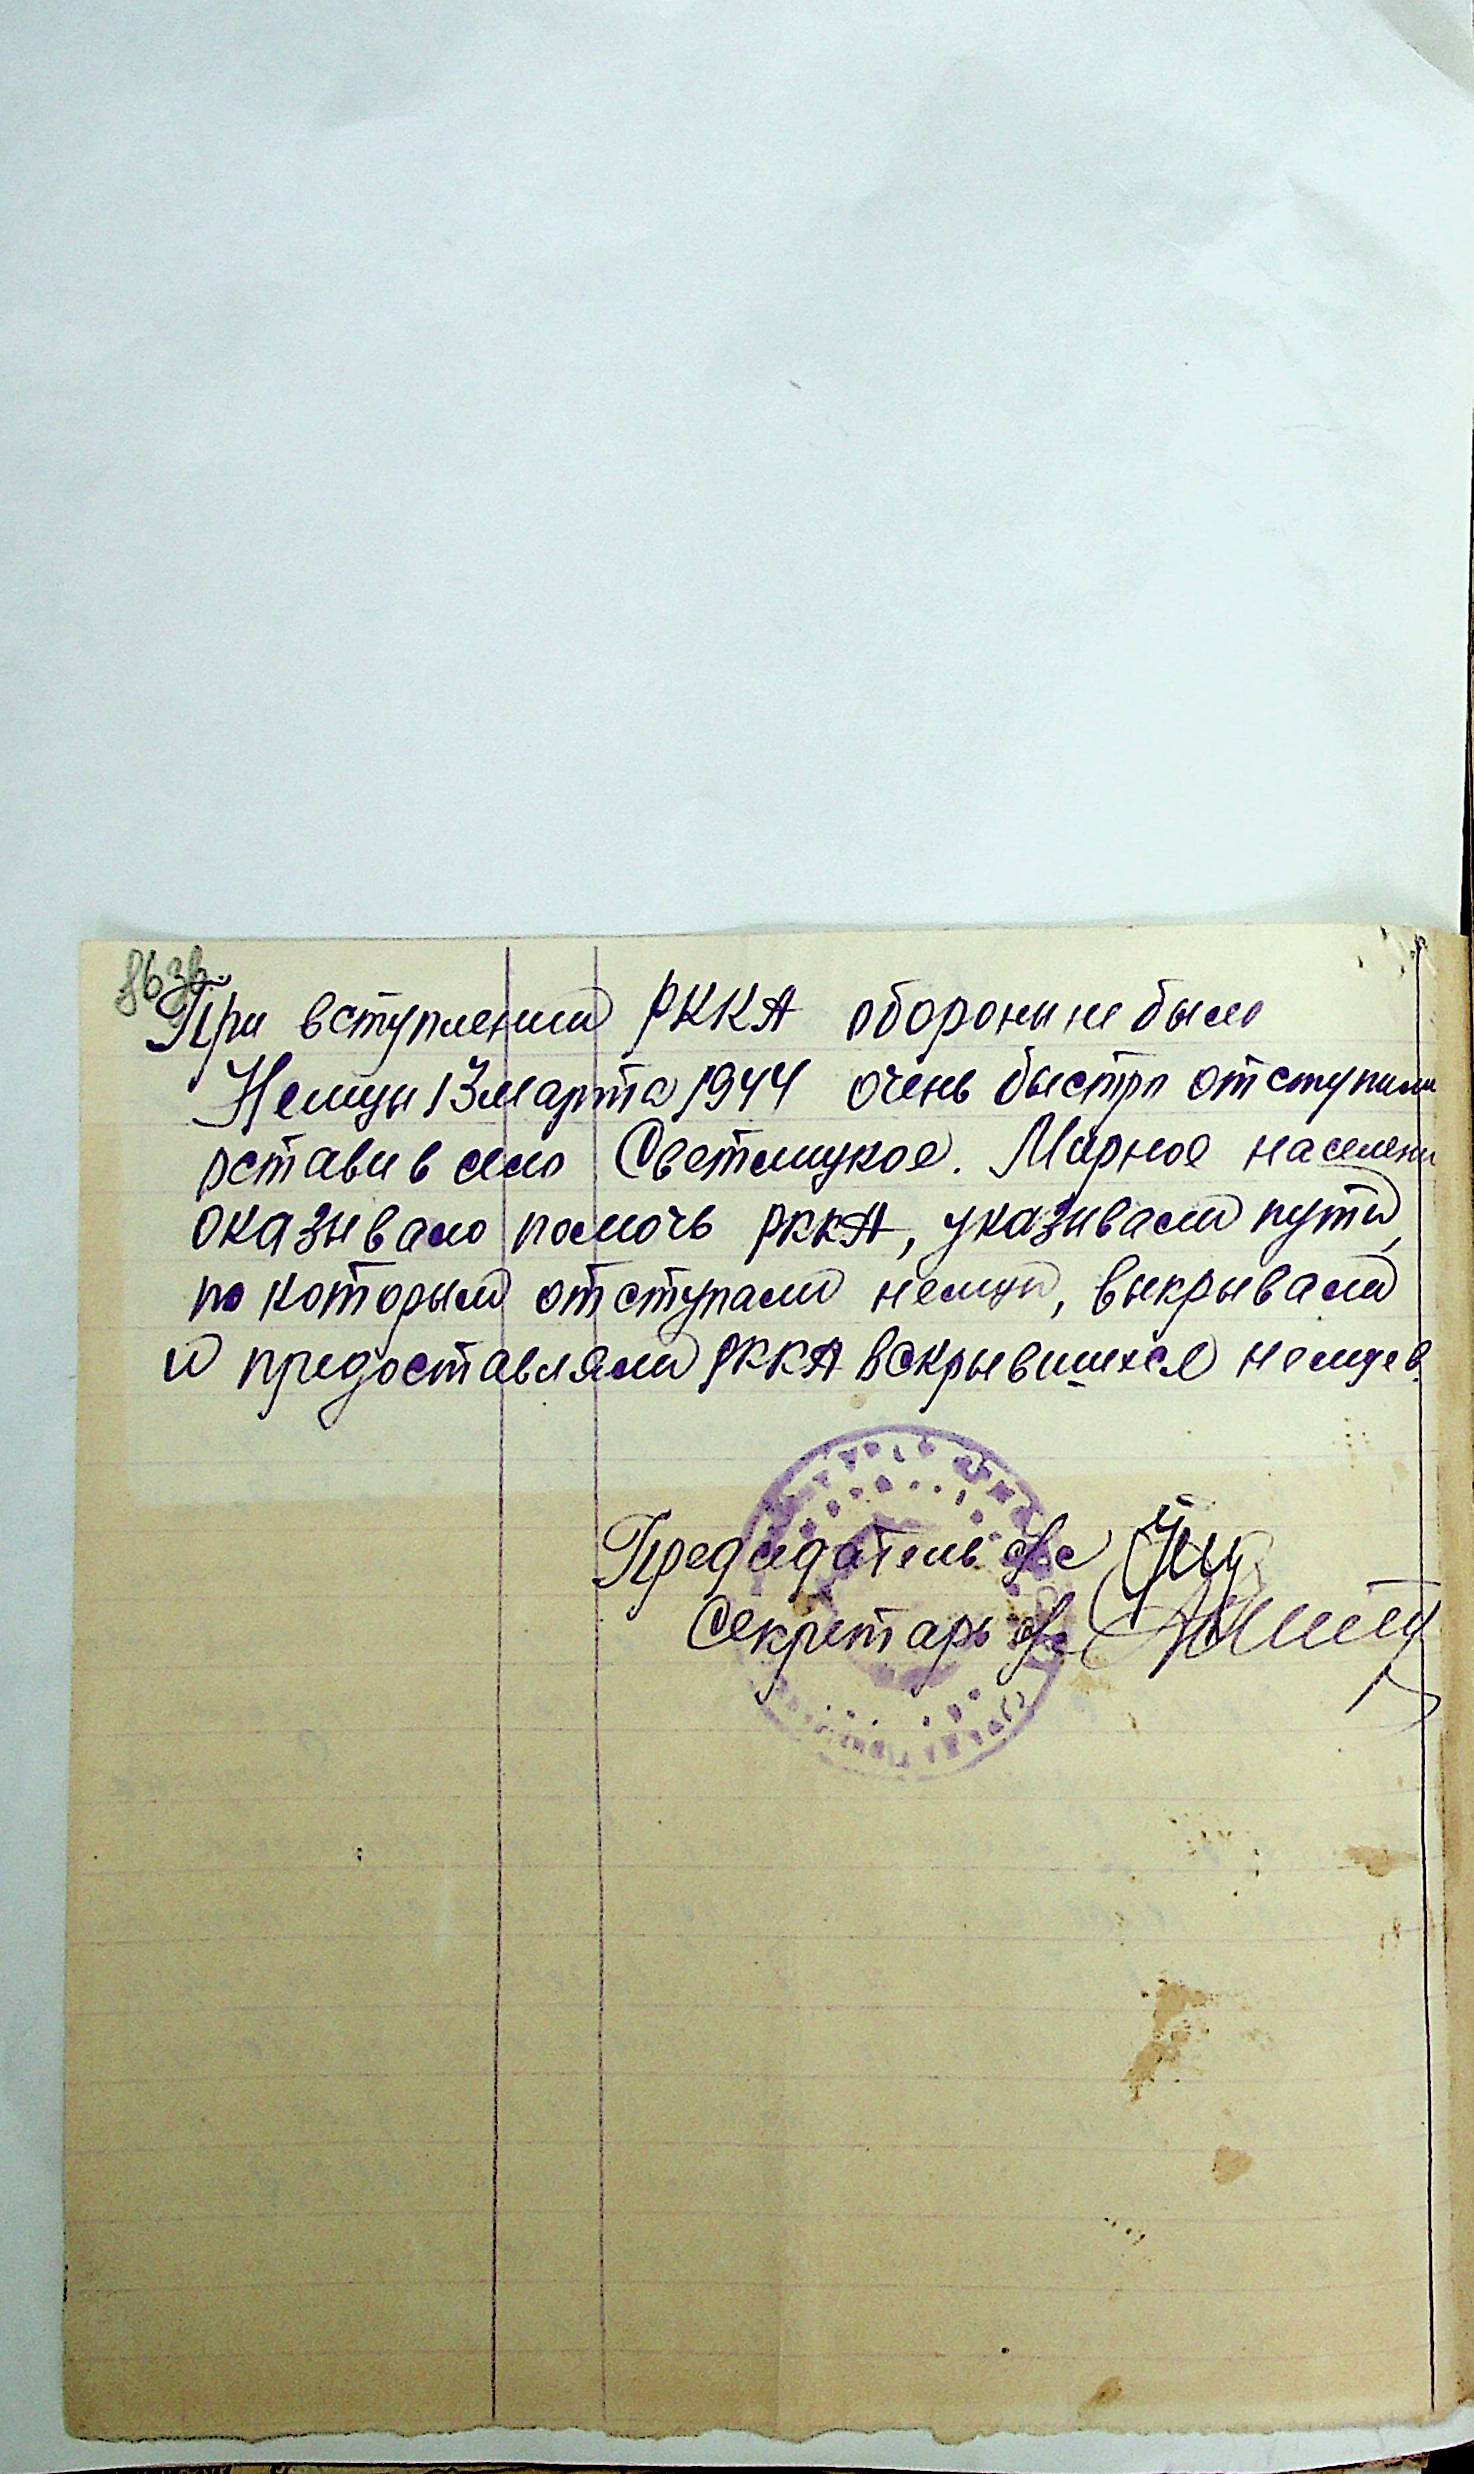 86 зв.
При вступлении РККА обороны не было
Немцы 13 марта 1944 очень быстро отступили
оставив село Светлицкое. Мирное населени
оказывало помочь РККА, указывали пути,
по которым отступали немцы, выкрывали
и предоставляли РККА вскрывшихся немцев.
Председатель с/с
Секретарь с/с